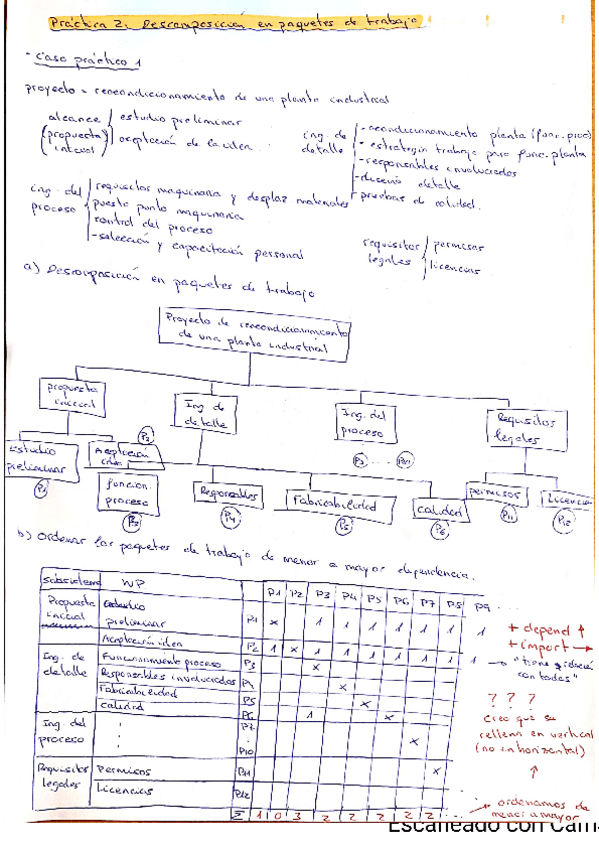 Práctica 2. Descomposición en paquetes de trabajo
- Caso práctico 1
proyecto = reacondicionamiento de una planta industrial
alcance estudio preliminar
(propuesta inicial) aceptación de la idea
ing. de detalle
- reacondicionamiento planta (func. proc)
- estrategia trabajo para func. planta
- responsables involucrados
- diseño detalle
- pruebas de calidad.
ing. del proceso
requisitos maquinaria y desplaz materiales
puesta punto maquinaria
control del proceso
- selección y capacitación personal
requisitos legales
permisos
licencias
a) Descomposición en paquetes de trabajo
Proyecto de reacondicionamiento
de una planta industrial
propuesta inicial
Ing de detalle
Ing. del proceso
Requisitos legales
Estudio preliminar
P1
Aceptación idea
P2
funcion. proceso
P3
Responsables
P4
Fabricabilidad
P5
calidad
P6
permisos
P11
Licencias
P12
b) Ordenar los paquetes de trabajo de menor a mayor dependencia.
Subsistema WP P1 P2 P3 P4 P5 P6 P7 P8 P9 ...
Propuesta inicial Estudio preliminar P1 x 1 1 1 1 1 1 1
Aceptación idea P2 1 x 1 1 1 1 1 1 1
Ing. de detalle Funcionamiento proceso P3 x
Responsables involucrados P4 x
Fabricabilidad P5 x
calidad P6 1 x
Ing. del proceso P7
: P10 x
Requisitos legales Permisos P11 x
Licencias P12
Σ 1 0 3 2 2 2 2 2 ...
+ depend ↑
+ import →
→ "tiene relación con todas"
? ? ?
creo que se
rellena en vertical
(no en horizontal)
↑
→ ordenamos de
menor a mayor
Escaneado con Cam